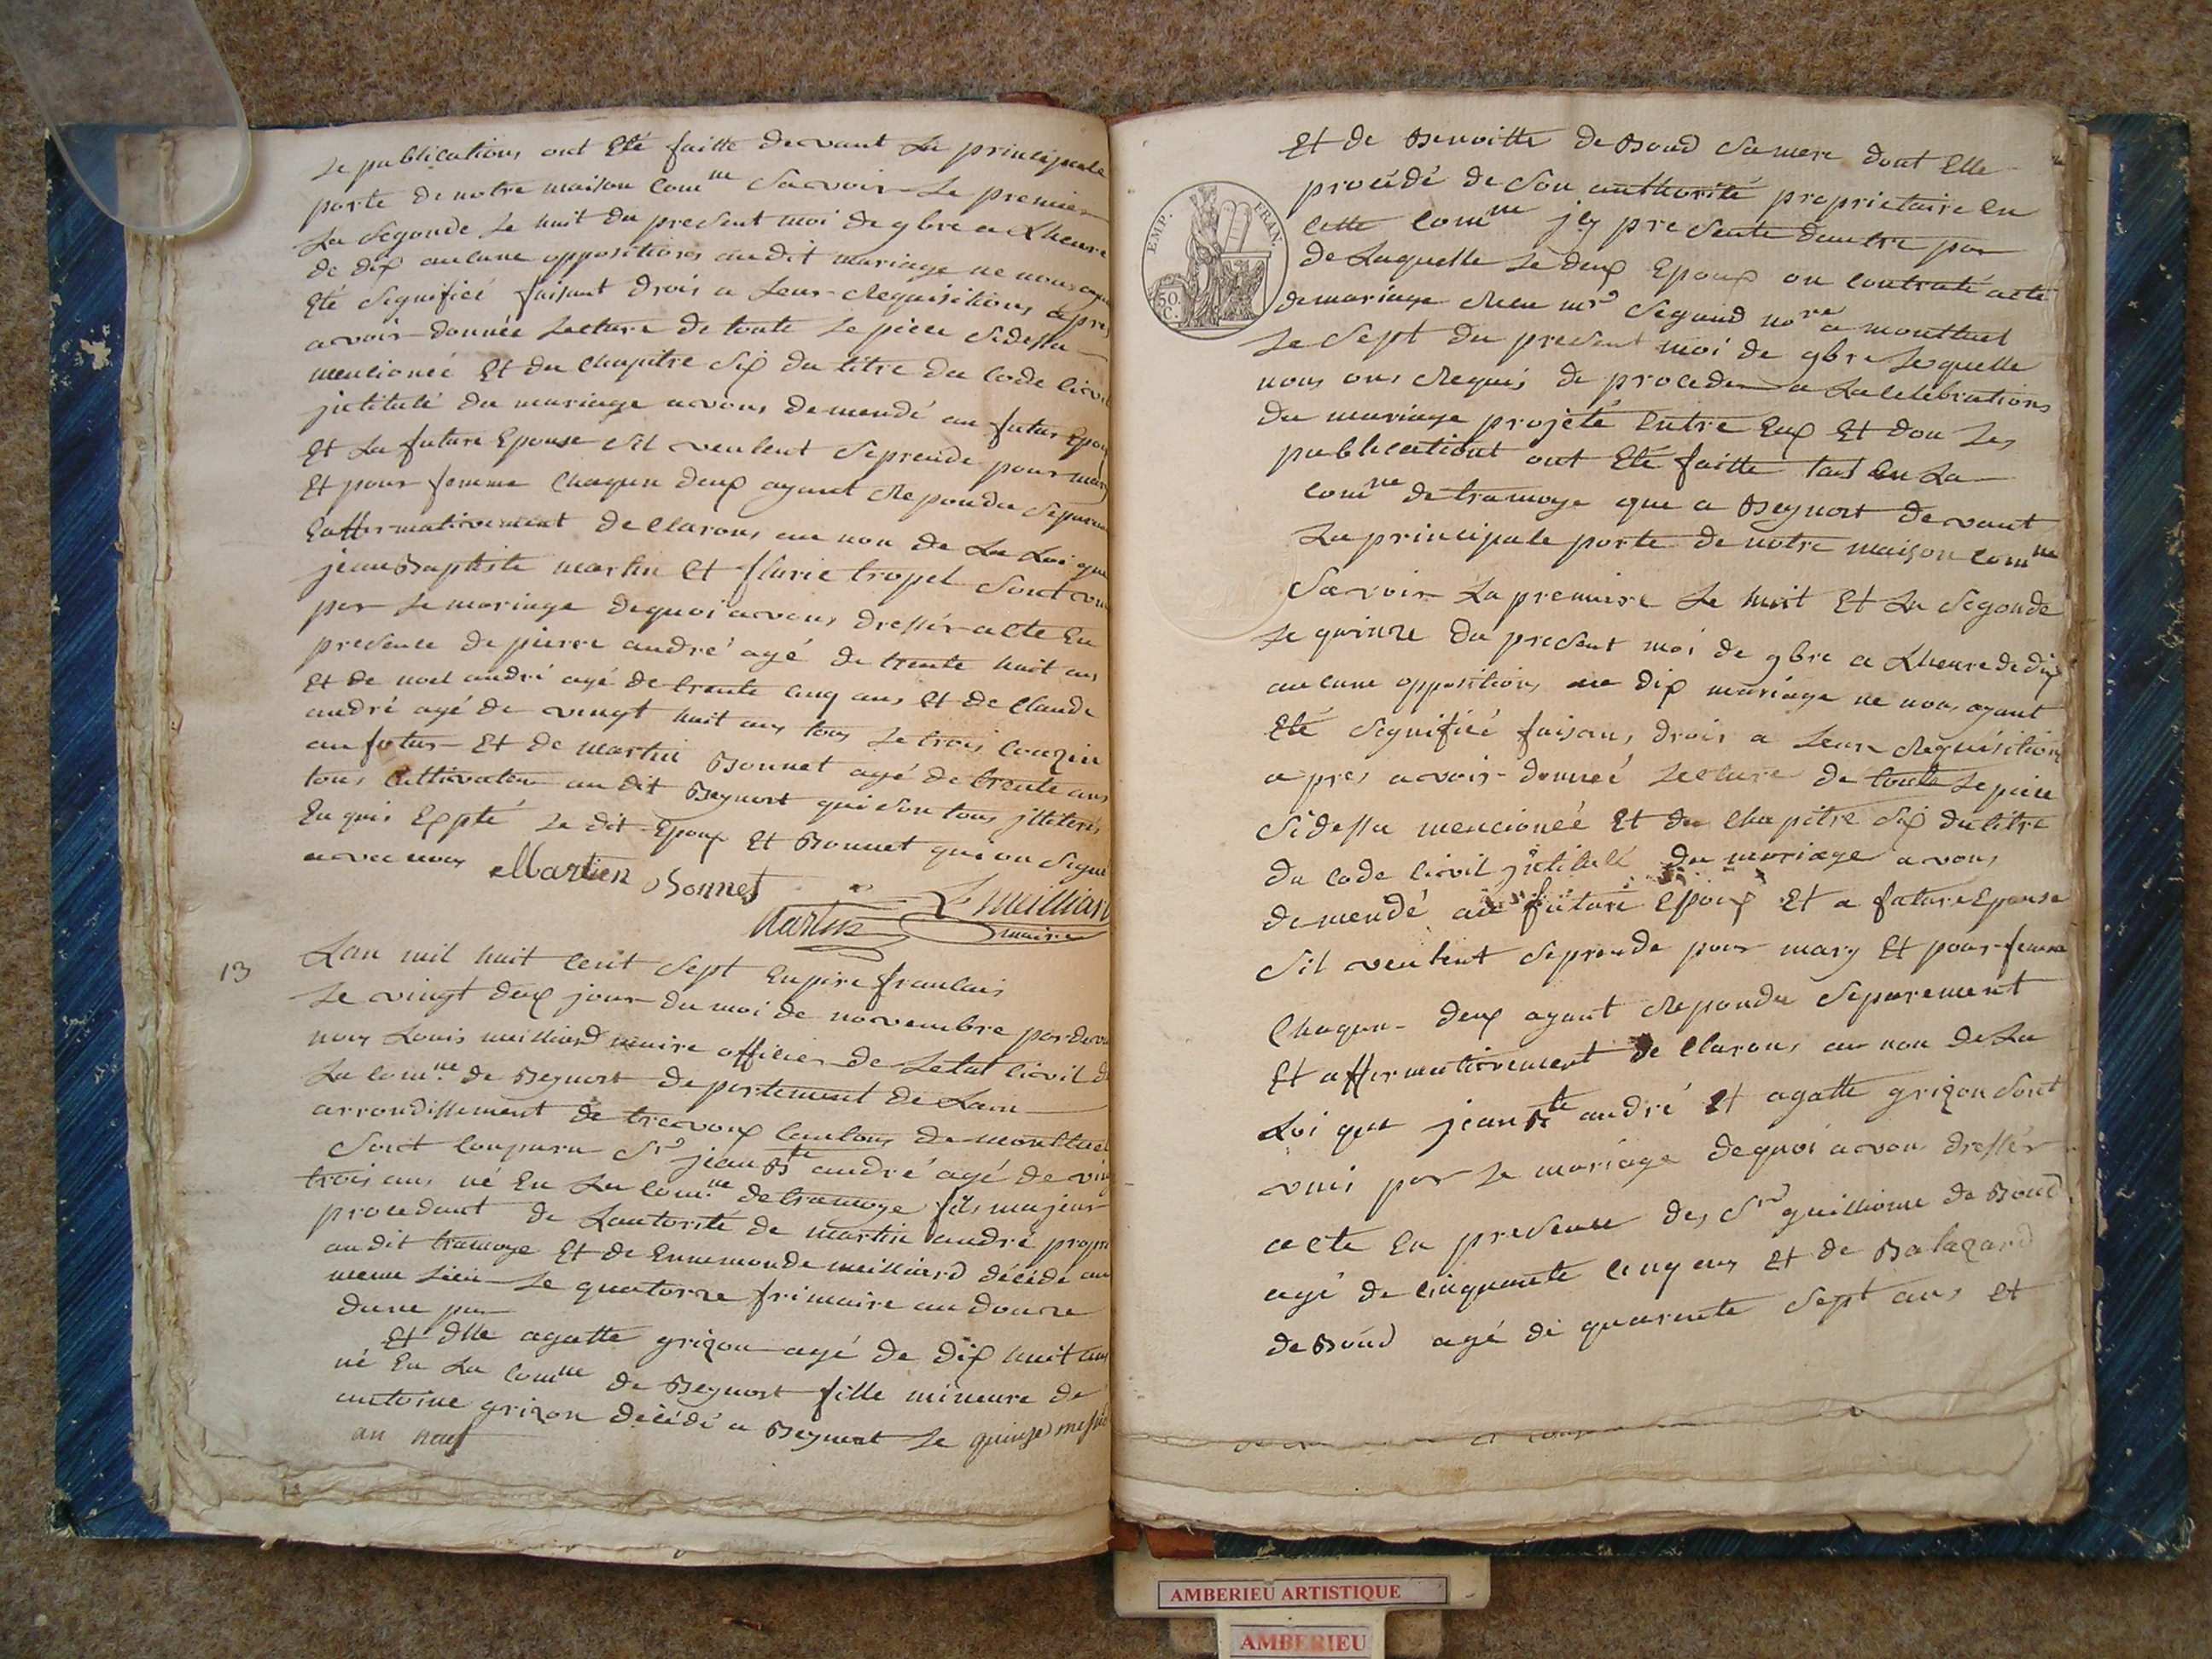 Le publications ont Eté faitte devant La principale
porte de notre maison comme Savoir Le premier
La Segonde Le huit du present moi de 9bre a Lheure
de dix aucune oppositions audit mariage ne nous ayant
Eté Signifieé faisant Drois a Leur Requisitions apres
avoir donnée Lecture de toute Le piece Sidessu
mencioneé Et du Chapitre Six du titre du Code Civil
jntitulé du mariage avons demendé au futur Epoux
Et La future Epouse Sil veulent Seprende pour mary
Et pour femme Chaqun deux ayant Repondu Separem
Eaffirmativement declarons au non de La Loi que
jean Baptiste martin Et flurie tropel Sont uni
par Le mariage dequoi avons dressér acte En
presence de pierre andré agé de trente huit ans
Et de noel andré agé de trente cinq ans Et de Claude
andré agé de vingt huit ans tous Le trois Couzin
au futur Et de martin Bonnet agé de trente ans
tous Cultivateur au dit Beynost qui Son tous jlliterés
Enquis Expté Le dit Epoux Et Bonnet qui on Signé
avec nous Martin Bonnet
Martin L Meilliard
maire
13 Lan mil huit Cent Sept Enpire francais
Le vingt deux jour du moi de novembre pardevan
nous Louis meilliard maire officier de Letat Civil de
La Comne de Beynost departement de Lain
arrondissement de trevoux Cantons de montluel
Sont Conparu Sr jean Bte andré agé de vingt
trois ans né En La Comne de tramoye fils majeur
procedant de Lautorité de martin andré propre
audit tramoye Et de Ennemonde meilliard décédé au
meme Lieu Le quatorze frimaire an douze
dune par
Et Dlle agatte grizon agé de dix huit ans
né En La Comne de Beynost fille mineure de
antoine grizon décédé a Beynost Le quinze messid
an neuf
Et de Benoitte de Boud Samere dont Elle
procédé de Son authorité proprietaire En
Cette Comne jcy presente dautre par
EMP. FRAN.
50. C.
de Laquelle Le deux Epoux on Contraté acte
demariage Recu mr Segaud nore a montluel
Le Sept du present moi de 9bre Lequelle
nous ons Requis de proceder a La Celebrations
du mariage projété Entre Eux Et don Les
publicationt ont Eté faitte tant En La
Comne de tramoye que a Beynost devant
La principale porte de notre maison Comne
Savoir La premiere Le huit Et La Segonde
Le quinze du present moi de 9bre a Lheure de dix
aucune opposition au dix mariage ne nous ayant
Eté Signifieé faisans drois a Leur Requisition
apres avoir donneé Lecture de toute Le piece
Sidessu mencioneé Et du Chapitre Six du titre
du Code Civil jntitulé du mariage avons
demendé au future Epoux Et a future Epouse
Sil veulent Seprende pour mary Et pour femme
Chaqun deux ayant Repondu Separement
Et affirmativement de Clarons au non de La
Loi que jean Bte andré Et agatte grizon Sont
unis par Le mariage dequoi avons dressér
acte En presence des Sr guilliome de Boud
agé de Cinquante Cinq ans Et de Balazard
de Boud agé de quarante Sept ans Et
AMBERIEU ARTISTIQUE
AMBERIEU